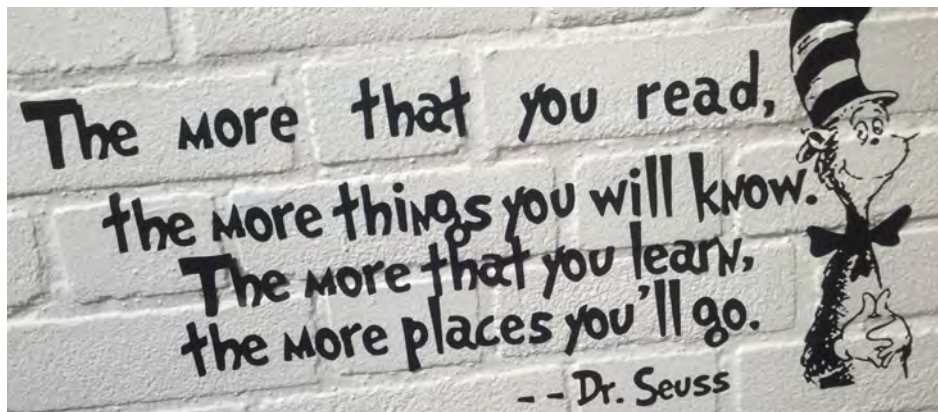 The more that you read,
the more things you will know.
The more that you learn,
the more places you'll go.
-- Dr. Seuss